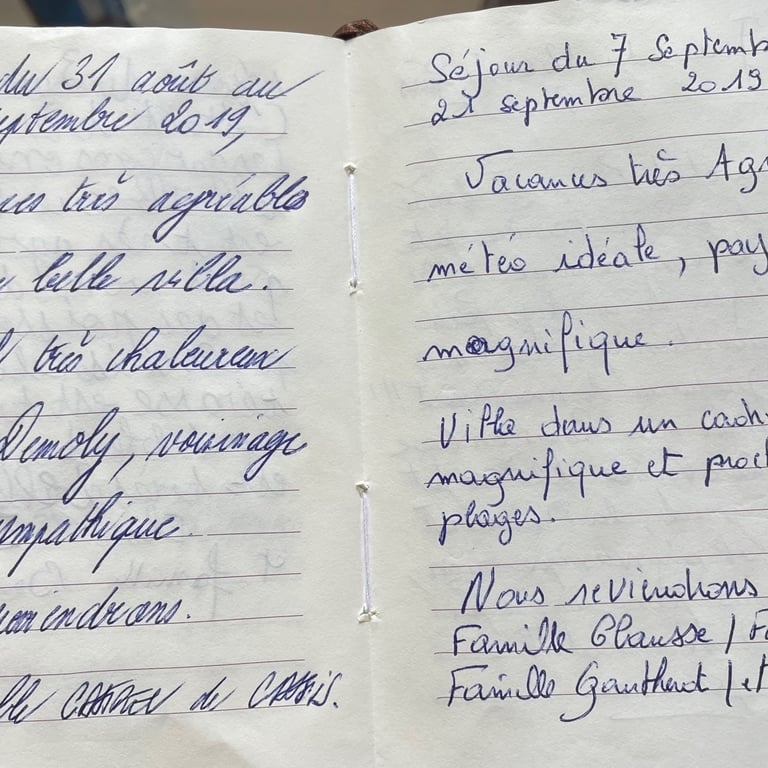 du 31 août au
septembre 2019,
très agréables
belle villa.
très chaleureux
Demoly, voisinage
sympathique.
reviendrons.
de CASSIS.
Séjour du 7 Septemb
21 septembre 2019
Vacances très Agr
météo idéale, pay
magnifique.
Villa dans un cadr
magnifique et proch
plages.
Nous reviendrons
Famille Clausse / Fa
Famille Gautherot / et